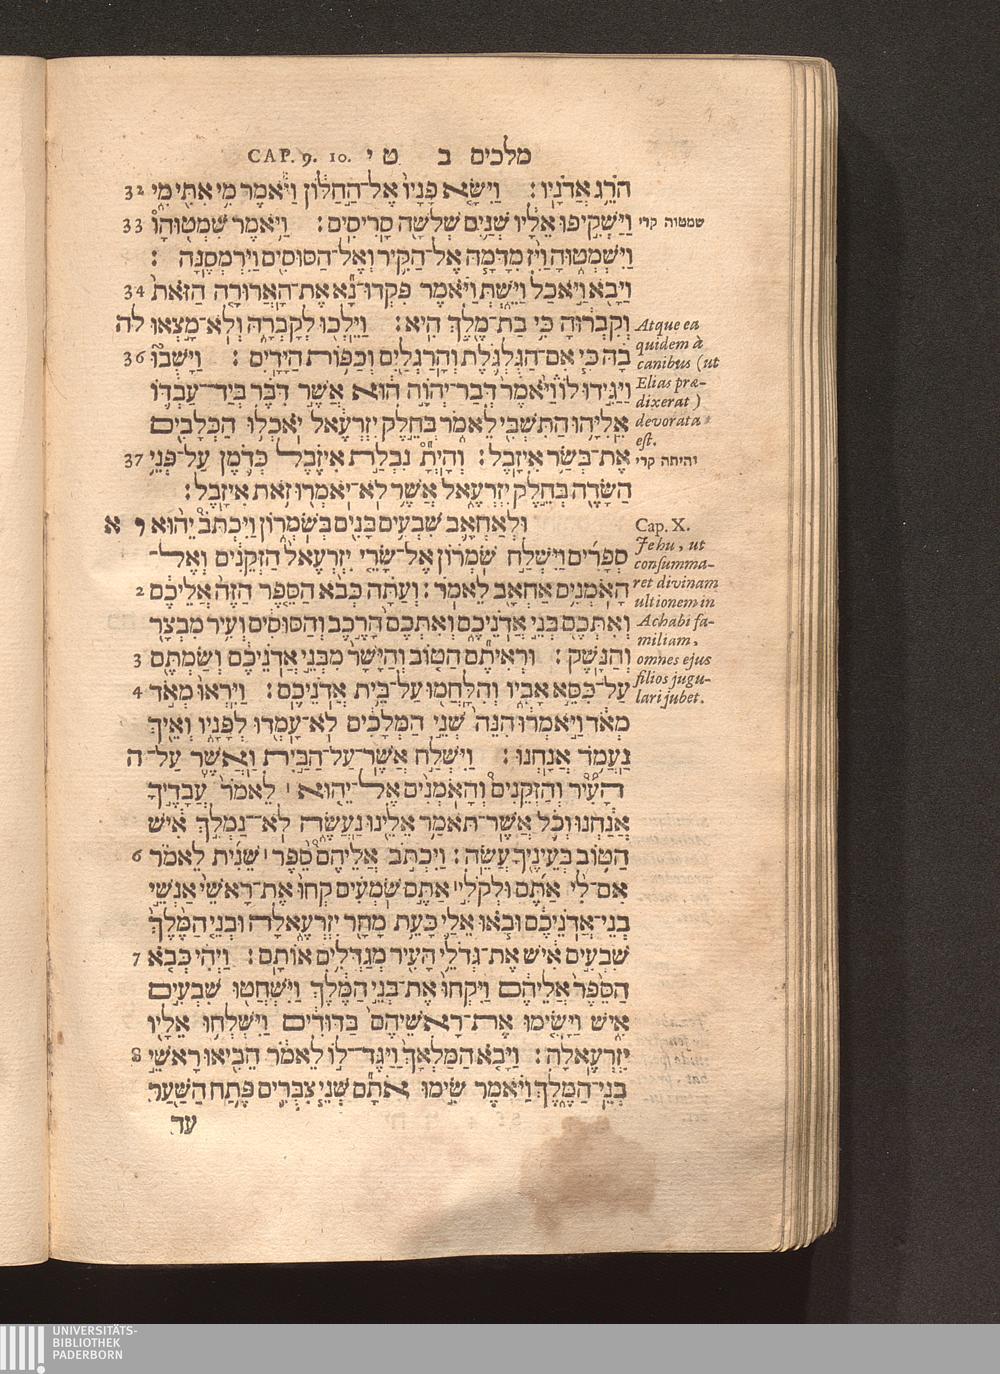 CAP. 9. 10. מלכים ב ט י
הֹרֵ֥ג אֲדֹנָֽיו׃ וַיִּשָּׂ֤א פָנָיו֙ אֶל־הַ֣חַלּ֔וֹן וַיֹּ֕אמֶר מִ֥י אִתִּ֖י מִ֑י 32
וַיַּשְׁקִ֣יפוּ אֵלָ֔יו שְׁנַ֥יִם שְׁלֹשָׁ֖ה סָרִיסִֽים׃ וַיֹּ֥אמֶר שִׁמְט֖וּהָוּ 33
שמטוה קרי
וַֽיִּשְׁמְט֑וּהָ וַיִּ֨ז מִדָּמָ֧הּ אֶל־הַקִּ֛יר וְאֶל־הַסּוּסִ֖ים וַֽיִּרְמְסֶֽנָּה׃
וַיָּבֹ֖א וַיֹּ֣אכַל וַיֵּ֑שְׁתְּ וַיֹּ֗אמֶר פִּקְדוּ־נָ֞א אֶת־הָאֲרוּרָ֤ה הַזֹּאת֙ 34
וְקִבְר֔וּהָ כִּ֥י בַת־מֶ֖לֶךְ הִֽיא׃ וַיֵּלְכ֖וּ לְקָבְרָ֑הּ וְלֹא־מָ֣צְאוּ לה
בָ֗הּ כִּ֧י אִם־הַגֻּלְגֹּ֛לֶת וְהָרַגְלַ֖יִם וְכַפּ֥וֹת הַיָּדָֽיִם׃ וַיָּשֻׁבוּ֮ 36
וַיַּגִּ֣ידוּ לוֹ֒ וַיֹּ֙אמֶר֙ דְּבַר־יְהֹוָ֣ה ה֔וּא אֲשֶׁ֣ר דִּבֶּ֗ר בְּיַד־עַבְדּ֛וֹ
אֵלִיָּ֥הוּ הַתִּשְׁבִּ֖י לֵאמֹ֑ר בְּחֵ֣לֶק יִזְרְעֶ֔אל יֹאכְל֥וּ הַכְּלָבִ֖ים
אֶת־בְּשַׂ֥ר אִיזָֽבֶל׃ וְהָיָ֞תָ נִבְלַ֣ת אִיזֶ֗בֶל כְּדֹ֛מֶן עַל־פְּנֵ֥י 37
והיתה קרי
הַשָּׂדֶ֖ה בְּחֵ֣לֶק יִזְרְעֶ֑אל אֲשֶׁ֥ר לֹֽא־יֹאמְר֖וּ זֹ֥את אִיזָֽבֶל׃
וּלְאַחְאָ֛ב שִׁבְעִ֥ים בָּנִ֖ים בְּשֹׁמְר֑וֹן וַיִּכְתֹּב֩ יֵה֨וּא י א
סְפָרִ֜ים וַיִּשְׁלַ֣ח שֹׁמְר֗וֹן אֶל־שָׂרֵ֤י יִזְרְעֶאל֙ הַזְּקֵנִ֔ים וְאֶל־
הָאֹמְנִ֥ים אַחְאָ֖ב לֵאמֹֽר׃ וְעַתָּ֗ה כְּבֹ֨א הַסֵּ֤פֶר הַזֶּה֙ אֲלֵיכֶ֔ם 2
וְאִתְּכֶ֖ם בְּנֵ֣י אֲדֹנֵיכֶ֑ם וְאִתְּכֶם֙ הָרֶ֣כֶב וְהַסּוּסִ֔ים וְעִ֥יר מִבְצָ֖ר
וְהַנָּֽשֶׁק׃ וּרְאִיתֶ֞ם הַטּ֤וֹב וְהַיָּשָׁר֙ מִבְּנֵ֣י אֲדֹנֵיכֶ֔ם וְשַׂמְתֶּ֖ם 3
עַל־כִּסֵּ֣א אָבִ֑יו וְהִֽלָּחֲמ֖וּ עַל־בֵּ֥ית אֲדֹנֵיכֶֽם׃ וַיִּֽרְאוּ֙ מְאֹ֣ד 4
מְאֹ֔ד וַיֹּ֣אמְר֔וּ הִנֵּה֙ שְׁנֵ֣י הַמְּלָכִ֔ים לֹ֥א עָמְד֖וּ לְפָנָ֑יו וְאֵ֖יךְ
נַעֲמֹ֥ד אֲנָֽחְנוּ׃ וַיִּשְׁלַ֣ח אֲשֶׁר־עַל־הַבַּ֣יִת וַאֲשֶׁ֪ר עַל־ה
הָעִ֟יר וְהַזְּקֵנִים֩ וְהָאֹמְנִ֨ים אֶל־יֵה֤וּא׀ לֵאמֹר֙ עֲבָדֶ֣יךָ
אֲנַ֔חְנוּ וְכֹ֛ל אֲשֶׁר־תֹּאמַ֥ר אֵלֵ֖ינוּ נַעֲשֶׂ֑ה לֹֽא־נַמְלִ֣ךְ אִ֔ישׁ
הַטּ֥וֹב בְּעֵינֶ֖יךָ עֲשֵֽׂה׃ וַיִּכְתֹּ֣ב אֲלֵיהֶם֩ סֵ֨פֶר׀ שֵׁנִ֜ית לֵאמֹ֗ר 6
אִם־לִ֨י אַתֶּ֜ם וּלְקֹלִ֣י׀ אַתֶּ֣ם שֹׁמְעִ֗ים קְחוּ֙ אֶת־רָאשֵׁי֙ אַנְשֵׁ֣י
בְנֵֽי־אֲדֹנֵיכֶ֔ם וּבֹ֧אוּ אֵלַ֛י כָּעֵ֥ת מָחָ֖ר יִזְרְעֶ֑אלָה וּבְנֵ֤י הַמֶּ֙לֶךְ֙
שִׁבְעִ֣ים אִ֔ישׁ אֶת־גְּדֹלֵ֥י הָעִ֖יר מְגַדְּלִ֥ים אוֹתָֽם׃ וַיְהִ֗י כְּבֹ֤א 7
הַסֵּ֙פֶר֙ אֲלֵיהֶ֔ם וַיִּקְחוּ֙ אֶת־בְּנֵ֣י הַמֶּ֔לֶךְ וַֽיִּשְׁחֲט֖וּ שִׁבְעִ֣ים
אִ֑ישׁ וַיָּשִׂ֤ימוּ אֶת־רָֽאשֵׁיהֶם֙ בַּדּוּדִ֔ים וַיִּשְׁלְח֥וּ אֵלָ֖יו
יִזְרְעֶֽאלָה׃ וַיָּבֹ֤א הַמַּלְאָךְ֙ וַיַּגֶּד־ל֣וֹ לֵאמֹ֔ר הֵבִ֖יאוּ רָאשֵׁ֣י 8
בְנֵֽי־הַמֶּ֑לֶךְ וַיֹּ֗אמֶר שִׂ֣ימוּ אֹתָ֞ם שְׁנֵ֧י צִבֻּרִ֛ים פֶּ֥תַח הַשַּׁ֖עַר
עַד
Atque ea
quidem à
canibus (ut
Elias præ-
dixerat)
devorata
est.
Cap. X.
Jehu, ut
consumma-
ret divinam
ultionem in
Achabi fa-
miliam,
omnes ejus
filios jugu-
lari jubet.
UNIVERSITÄTS-
BIBLIOTHEK
PADERBORN